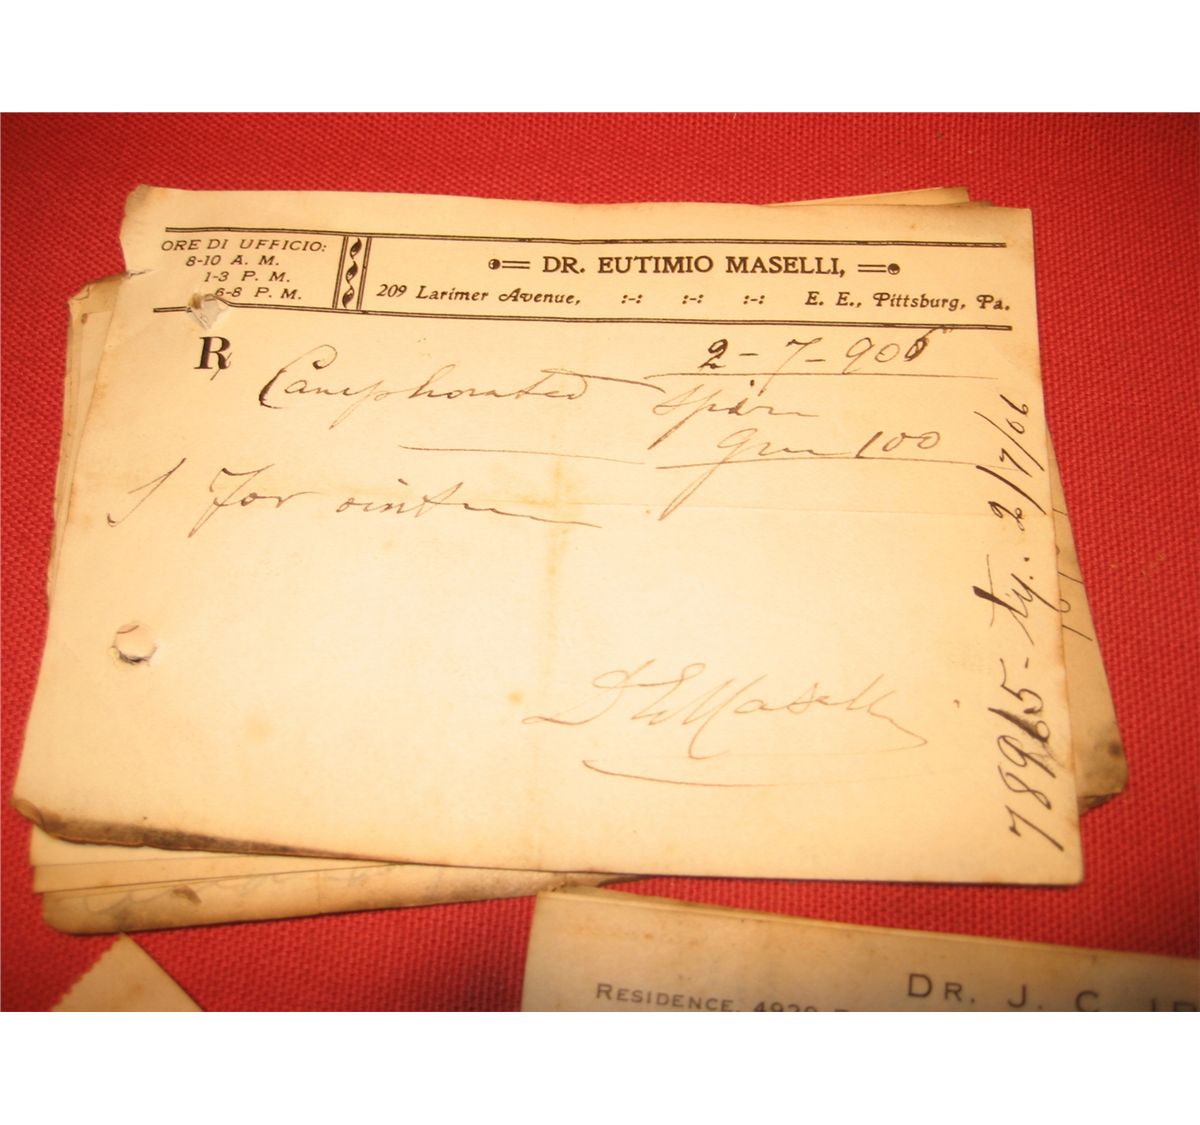 ORE DI UFFICIO:
8-10 A. M.
1-3 P. M.
6-8 P. M.
DR. EUTIMIO MASELLI,
209 Larimer Avenue, :-: :-: :-: E. E., Pittsburg, Pa.
R 2-7-906
Camphorated Spir
Gm 100
S For
Dr E Maselli
78965 - 2/7/06
DR. J. C.
RESIDENCE, 4929